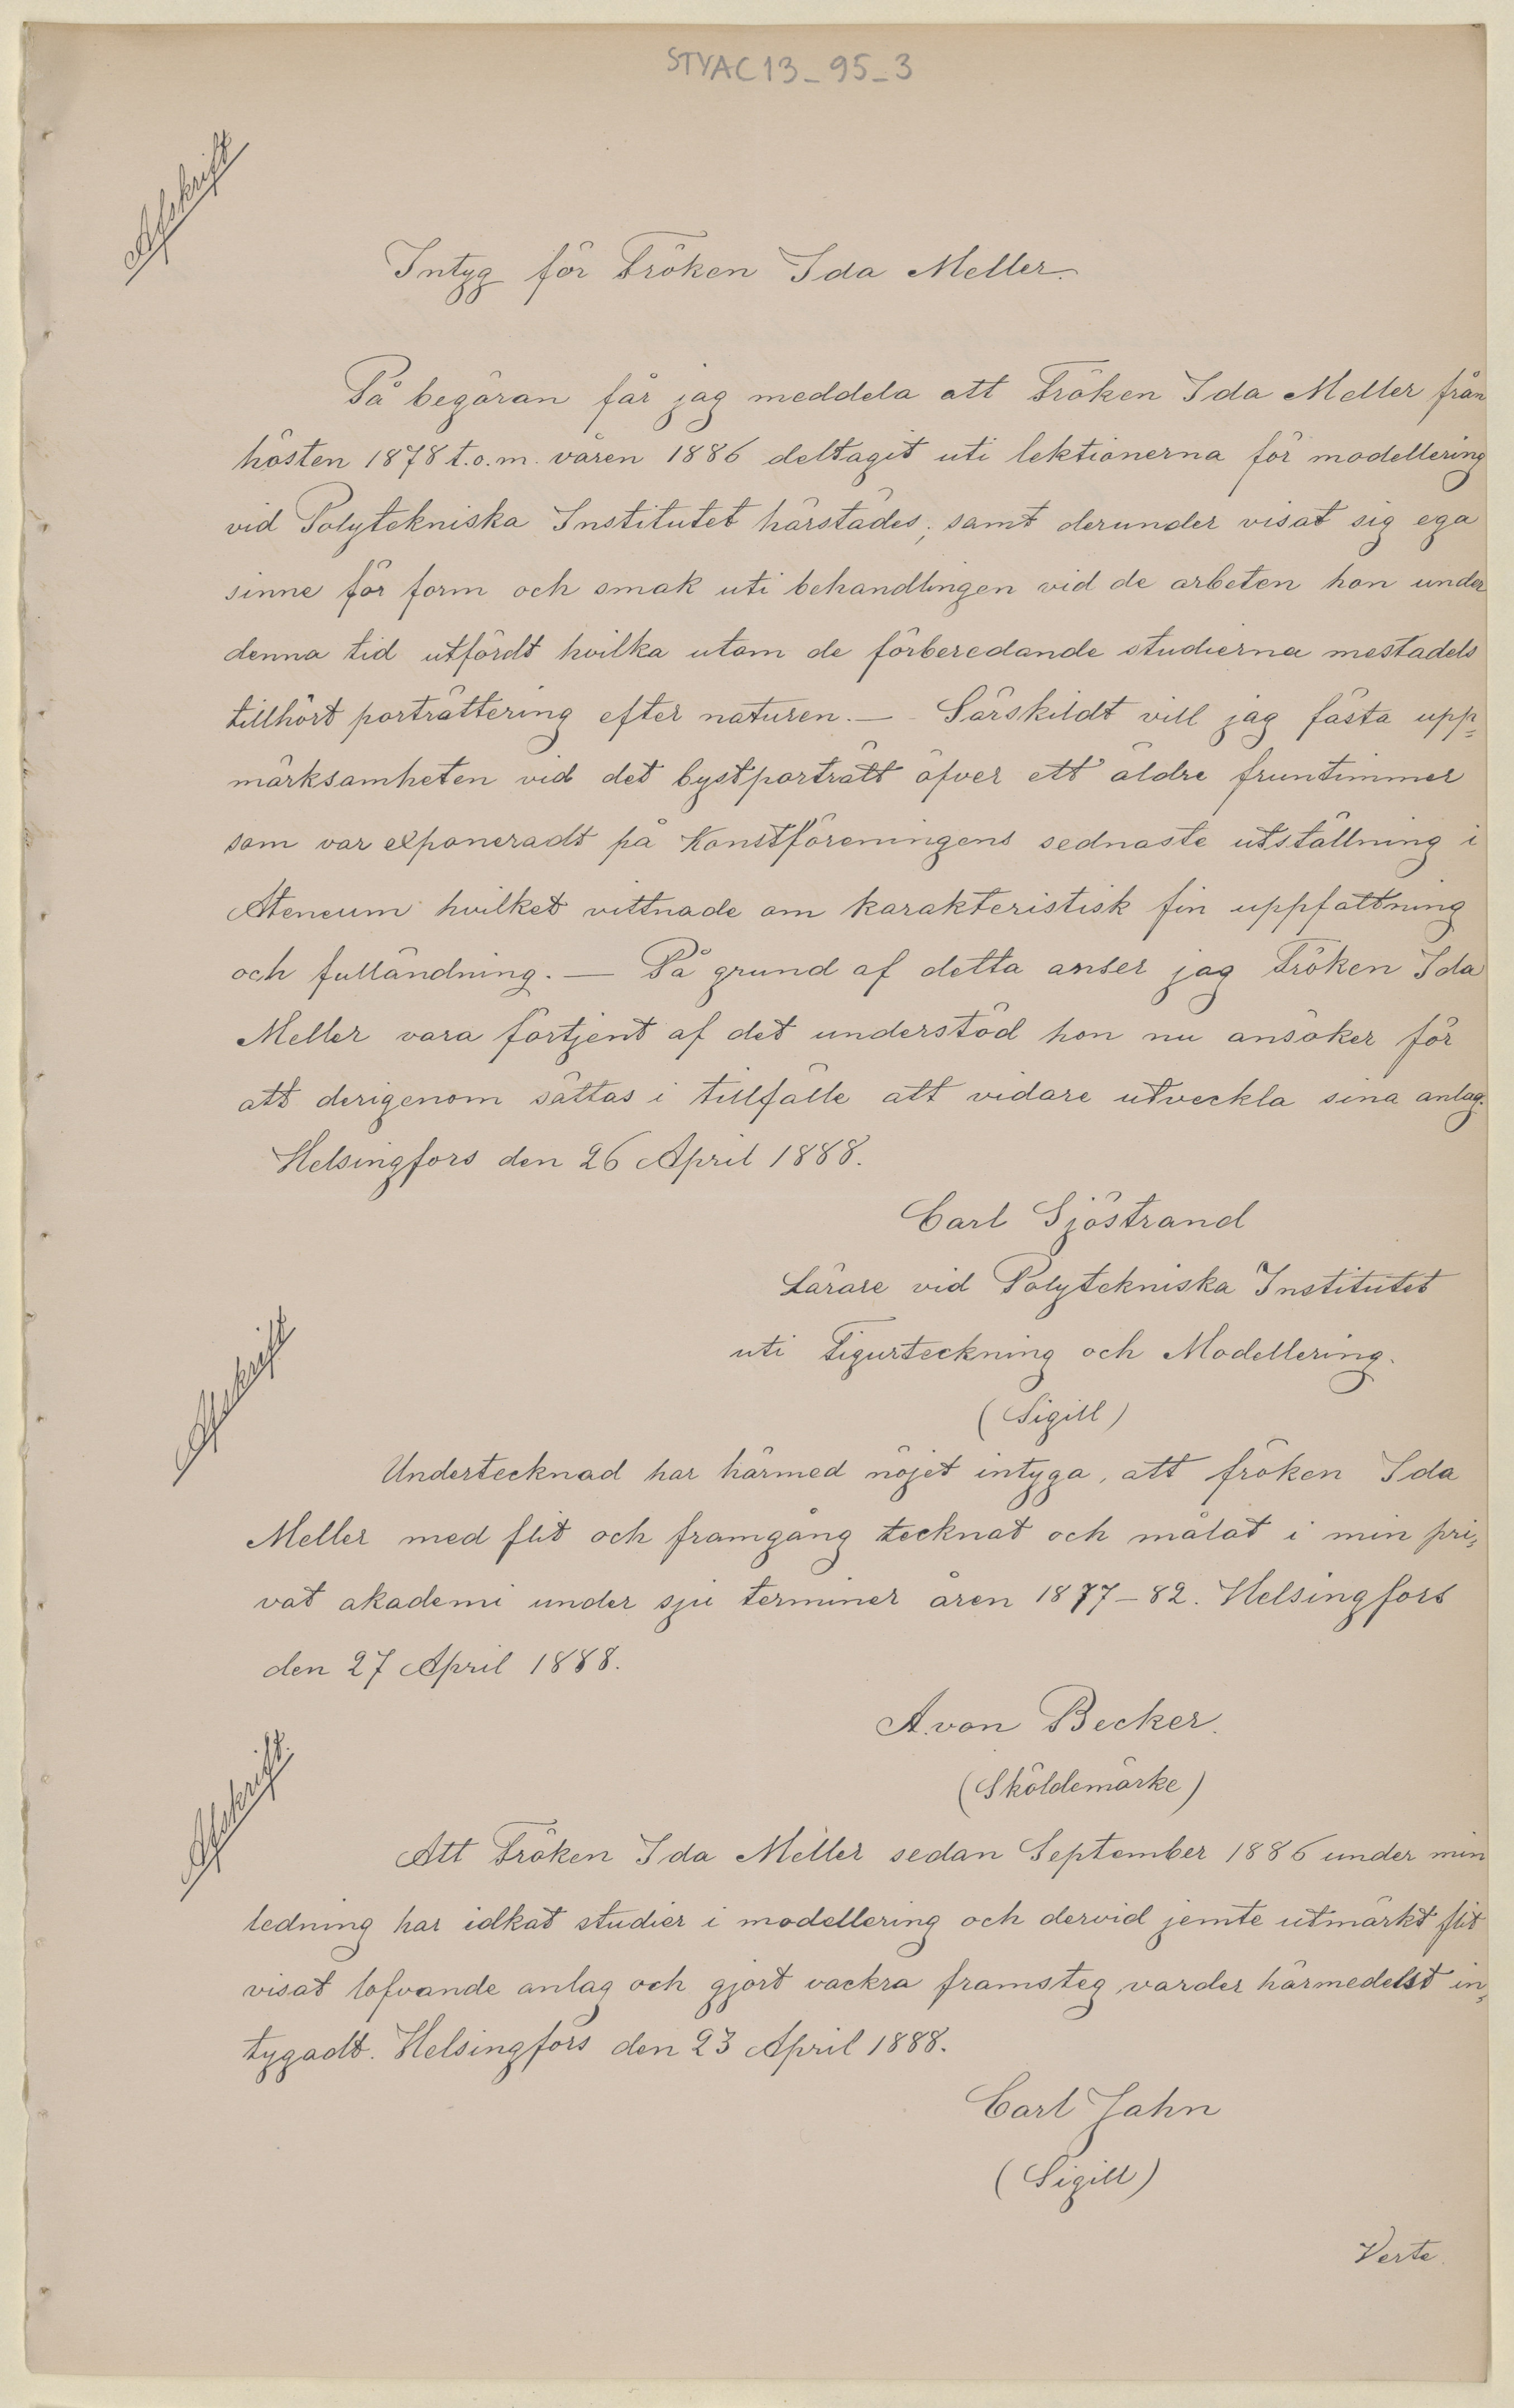 STYAC13_95_3
Afskrift
Intyg för Fröken Ida Meller.
På begäran får jag meddela att Fröken Ida Meller från
hösten 1878 t.o.m. våren 1886 deltagit uti lektionerna för modellering
vid Polytekniska Institutet härstädes; samt derunder visat sig ega
sinne för form och smak uti behandlingen vid de arbeten hon under
denna tid utfördt hvilka utom de förberedande studierna mestadels
tillhört porträttering efter naturen. — Särskildt vill jag fästa upp-
märksamheten vid det bystporträtt öfver ett äldre fruntimmer
som var exponeradt på Konstföreningens sednaste utställning i
Ateneum hvilket vittnade om karakteristisk fin uppfattning
och fulländning. — På grund af detta anser jag Fröken Ida
Meller vara förtjent af det understöd hon nu ansöker för
att derigenom sättas i tillfälle att vidare utveckla sina anlag.
Helsingfors den 26 April 1888.
Carl Sjöstrand
Lärare vid Polytekniska Institutet
uti Figurteckning och Modellering.
(Sigill)
Afskrift
Undertecknad har härmed nöjet intyga, att fröken Ida
Meller med flit och framgång tecknat och målat i min pri-
vat akademi under sju terminer åren 1877–82. Helsingfors
den 27 April 1888.
A. von Becker.
(Sköldemärke)
Afskrift.
Att Fröken Ida Meller sedan September 1886 under min
ledning har idkat studier i modellering och dervid jemte utmärkt flit
visat lofvande anlag och gjort vackra framsteg varder härmedelst in-
tygadt. Helsingfors den 23 April 1888.
Carl Jahn
(Sigill)
Verte.